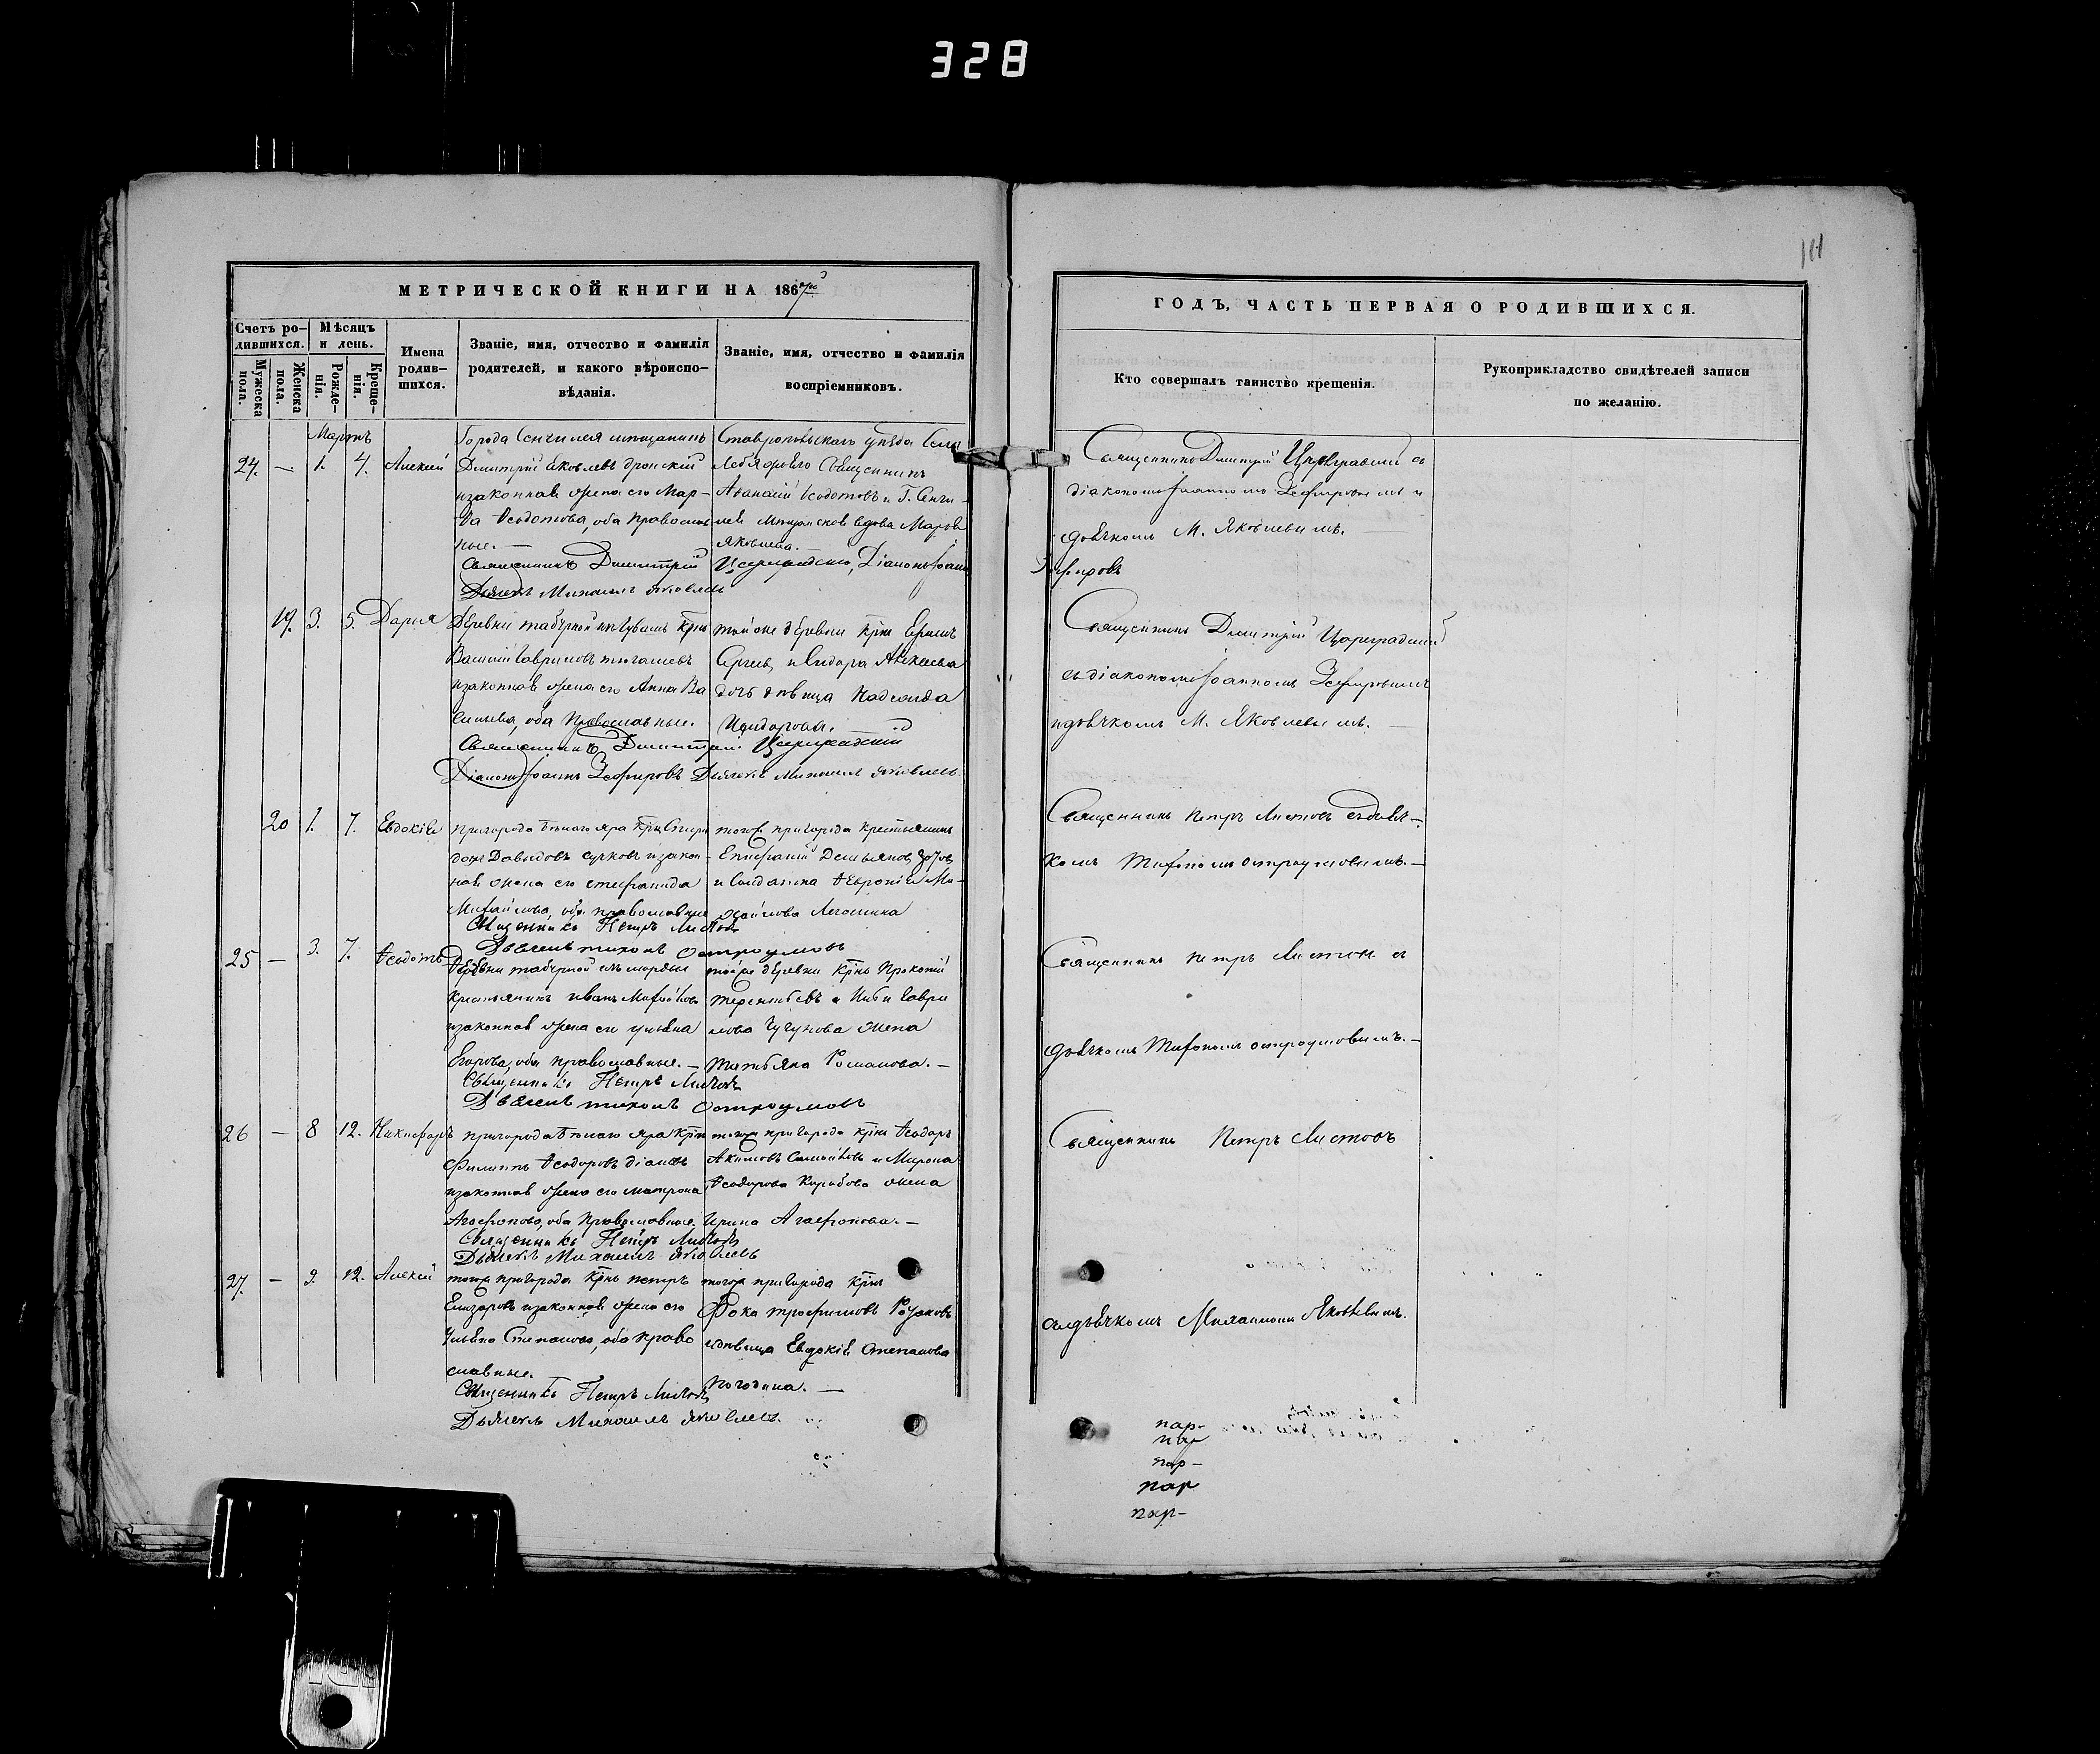 328
111
МЕТРИЧЕСКОЙ КНИГИ НА 1867й
Счетъ ро-
дившихся.
Мѣсяцъ
и день.
Мужеска
пола.
Женска
пола.
Рожде-
нія.
Креще-
нія.
Имена
родив-
шихся.
Званіе, имя, отчество и фамилія
родителей, и какого вѣроиспо-
вѣданія.
Званіе, имя, отчество и фамилія
воспріемниковъ.
ГОДЪ, ЧАСТЬ ПЕРВАЯ О РОДИВШИХСЯ.
Кто совершалъ таинство крещенія.
Рукоприкладство свидѣтелей записи
по желанію.
Мартъ
24. — 1. 4. Алексій
Города Сенгилея мѣщанинъ
Дмитрій Яковлевъ
изаконная жена его Мар-
ѳа Ѳеодотова, оба православ
ные. —
Священникъ Димитрій Цареградскій, Діаконъ Іоаннъ
Дьячекъ Михаилъ Яковлевъ
Ставропольскаго уѣзда Села
Священникъ
Аѳанасій Ѳеодотовъ и Г. Сенги-
лея Мѣщанская вдова Марья
Яковлева. —
Священникъ Дмитрій Цареградскій съ
діакономъ Іоанномъ Зефировымъ и
дьячкомъ М. Яковлевымъ. —
Зефировъ
19. 3. 5. Дарія
Деревни крнъ
Василій Гавриловъ
изаконная жена его Анна Ва
сильева, оба Православные.
Священникъ Димитрій Цареградскій
Діаконъ Іоаннъ Зефировъ Дьячекъ Михаилъ Яковлевъ
той же деревни крнъ
Сергѣевъ и Сидора Алексѣева
дочь дѣвица Надежда
Священникъ Дмитрій Цареградскій
съ діакономъ Іоанномъ Зефировымъ
и дьячкомъ М. Яковлевымъ. —
20 1. 7. Евдокія
пригорода Бѣлаго яра крнъ Спири
донъ Давыдовъ сучковъ изакон-
ная жена его степанида
Михайлова, оба православные
Священникъ Петръ Листовъ
Дьячекъ тихонъ остроумовъ
тогож пригорода крестьянинъ
Епифаній Демьяновъ
и Солдатка Ѳевронія Ми-
хайлова
Священникъ Петръ Листовъ съдьяч-
комъ Тихономъ остроумовымъ. —
25 — 3. 7. Ѳеодотъ
Деревни
Крестьянинъ иванъ
изаконная жена его ульяна
Егорова, оба православные. —
Священникъ Петръ Листовъ
Дьячекъ тихонъ остроумовъ
тойже деревни крнъ Прокопій
терентьевъ и Гаври
лова Чугунова жена
татьяна Романова. —
Священникъ петръ Листовъ съ
дьячкомъ Тихономъ остроумовымъ. —
26 — 8 12. Никифоръ
пригорода Бѣлаго яра крнъ
Филиппъ Ѳеодоровъ
изаконная жена его матрона
Агафонова, оба Православные.
Священникъ Петръ Листовъ
Дьячекъ Михаилъ Яковлевъ
тогож пригорода крнъ Ѳеодоръ
Акимовъ Самойловъ и Мирона
Ѳеодорова Коробова жена
Ирина Агафонова. —
Священникъ Петръ Листовъ
27. — 9. 12. Алексій
тогож пригорода крнъ петръ
Елизаровъ изаконная жена его
Ульяна Степанова, оба право
славные.
Священникъ Петръ Листовъ
Дьячекъ Михаилъ Яковлевъ.
тогож пригорода крнъ
Фока трофимовъ
идѣвица Евдокія Степанова
Погодина. —
съдьячкомъ Михаиломъ Яковлевымъ.
пар-
пар
пар-
пар
пар-